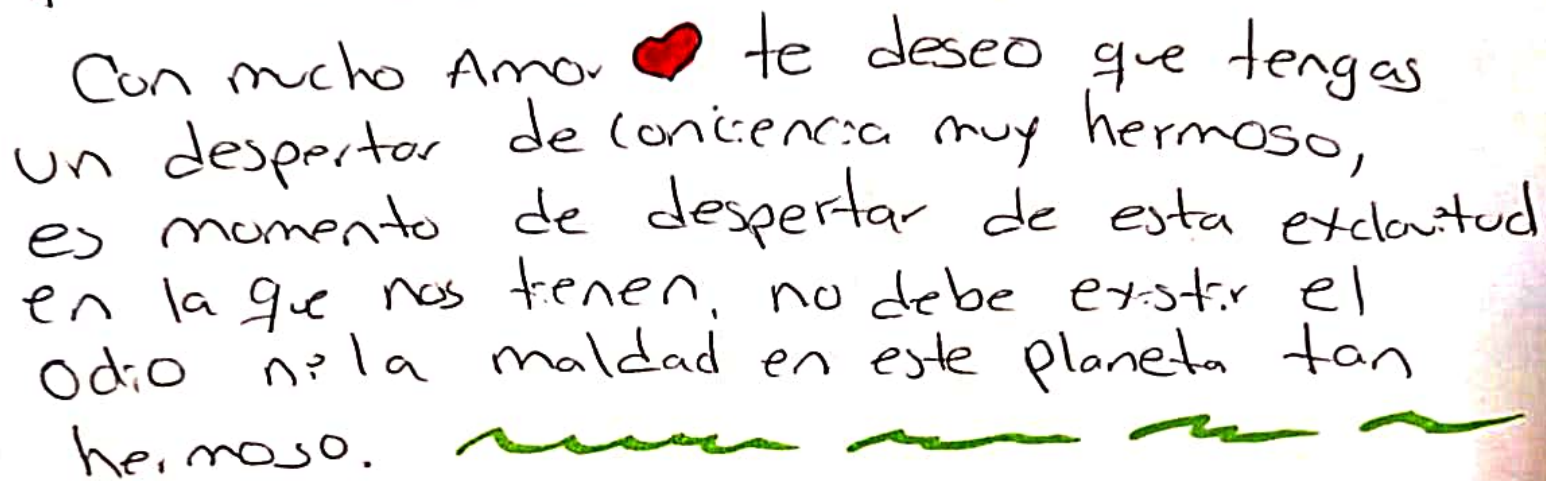 Con mucho Amor te deseo que tengas
un despertar de conciencia muy hermoso,
es momento de despertar de esta exclavitud
en la que nos tienen, no debe existir el
odio ni la maldad en este planeta tan
hermoso.